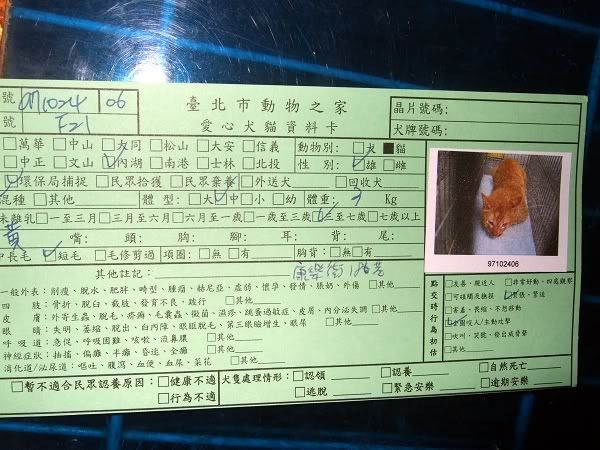 號 971024 06 臺北市動物之家 晶片號碼:
號 F21 愛心犬貓資料卡 犬牌號碼:
□萬華 □中山 □大同 □松山 □大安 □信義 動物別: □犬 ■貓
□中正 □文山 □內湖 □南港 □士林 □北投 性別: □雄 □雌
□環保局捕捉 □民眾拾獲 □民眾棄養 □外送犬 □回收犬
混種 □其他 體型: □大 □中 □小 □幼 體重: 3 Kg
未離乳 □一至三月 □三月至六月 □六月至一歲 □一至三歲 □三至七歲 □七歲以上
黃 嘴: 頭: 胸: 腳: 耳: 背: 尾:
中長毛 □短毛 □毛修剪過 項圈: □無 □有 胸背: □無 □有
其他註記: 康樂街
一般外表: 削瘦、脫水、肥胖、畸型、腫瘤、赫尼亞、虛弱、懷孕、發情、脹奶、外傷 □其他
四肢: 骨折、脫臼、截肢、發育不良、跛行 □其他
皮膚: 外寄生蟲、脫毛、疥癬、毛囊蟲、黴菌、濕疹、跳蚤過敏症、皮屑、內分泌失調 □其他
眼睛: 失明、萎縮、脫出、白內障、眼瞼脫毛、第三眼瞼增生、眼屎 □其他
呼吸道: 急促、呼吸困難、咳嗽、流鼻膿 □其他
神經症狀: 抽搐、偏癱、半癱、昏迷、全癱 □其他
消化道/泌尿道: 嘔吐、腹瀉、血便、血尿、菜花 □其他
97102406
點交時行為初估
□友善、親近人 □非常好動、四處觀察
□可碰觸及撫摸 □緊張、緊迫
□害羞、畏縮、不想移動
□企圖咬人/主動攻擊
□吠叫、哭號、發出威脅聲
□其他
□暫不適合民眾認養原因: □健康不適 □行為不適
犬隻處理情形: □認領 □認養 □自然死亡
□逃脫 □緊急安樂 □逾期安樂